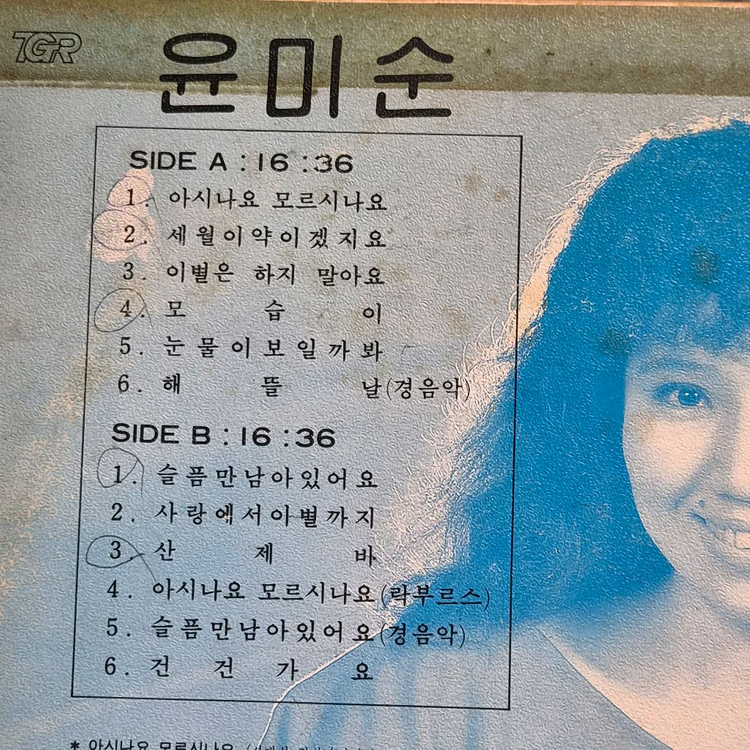 TGR
윤미순
SIDE A : 16 : 36
1. 아시나요 모르시나요
2. 세월이약이겠지요
3. 이별은 하지 말아요
4. 모습이
5. 눈물이보일까봐
6. 해뜰날(경음악)
SIDE B : 16 : 36
1. 슬픔만남아있어요
2. 사랑에서이별까지
3. 산제바
4. 아시나요 모르시나요(락부르스)
5. 슬픔만남아있어요(경음악)
6. 건건가요
* 아시나요 모르시나요